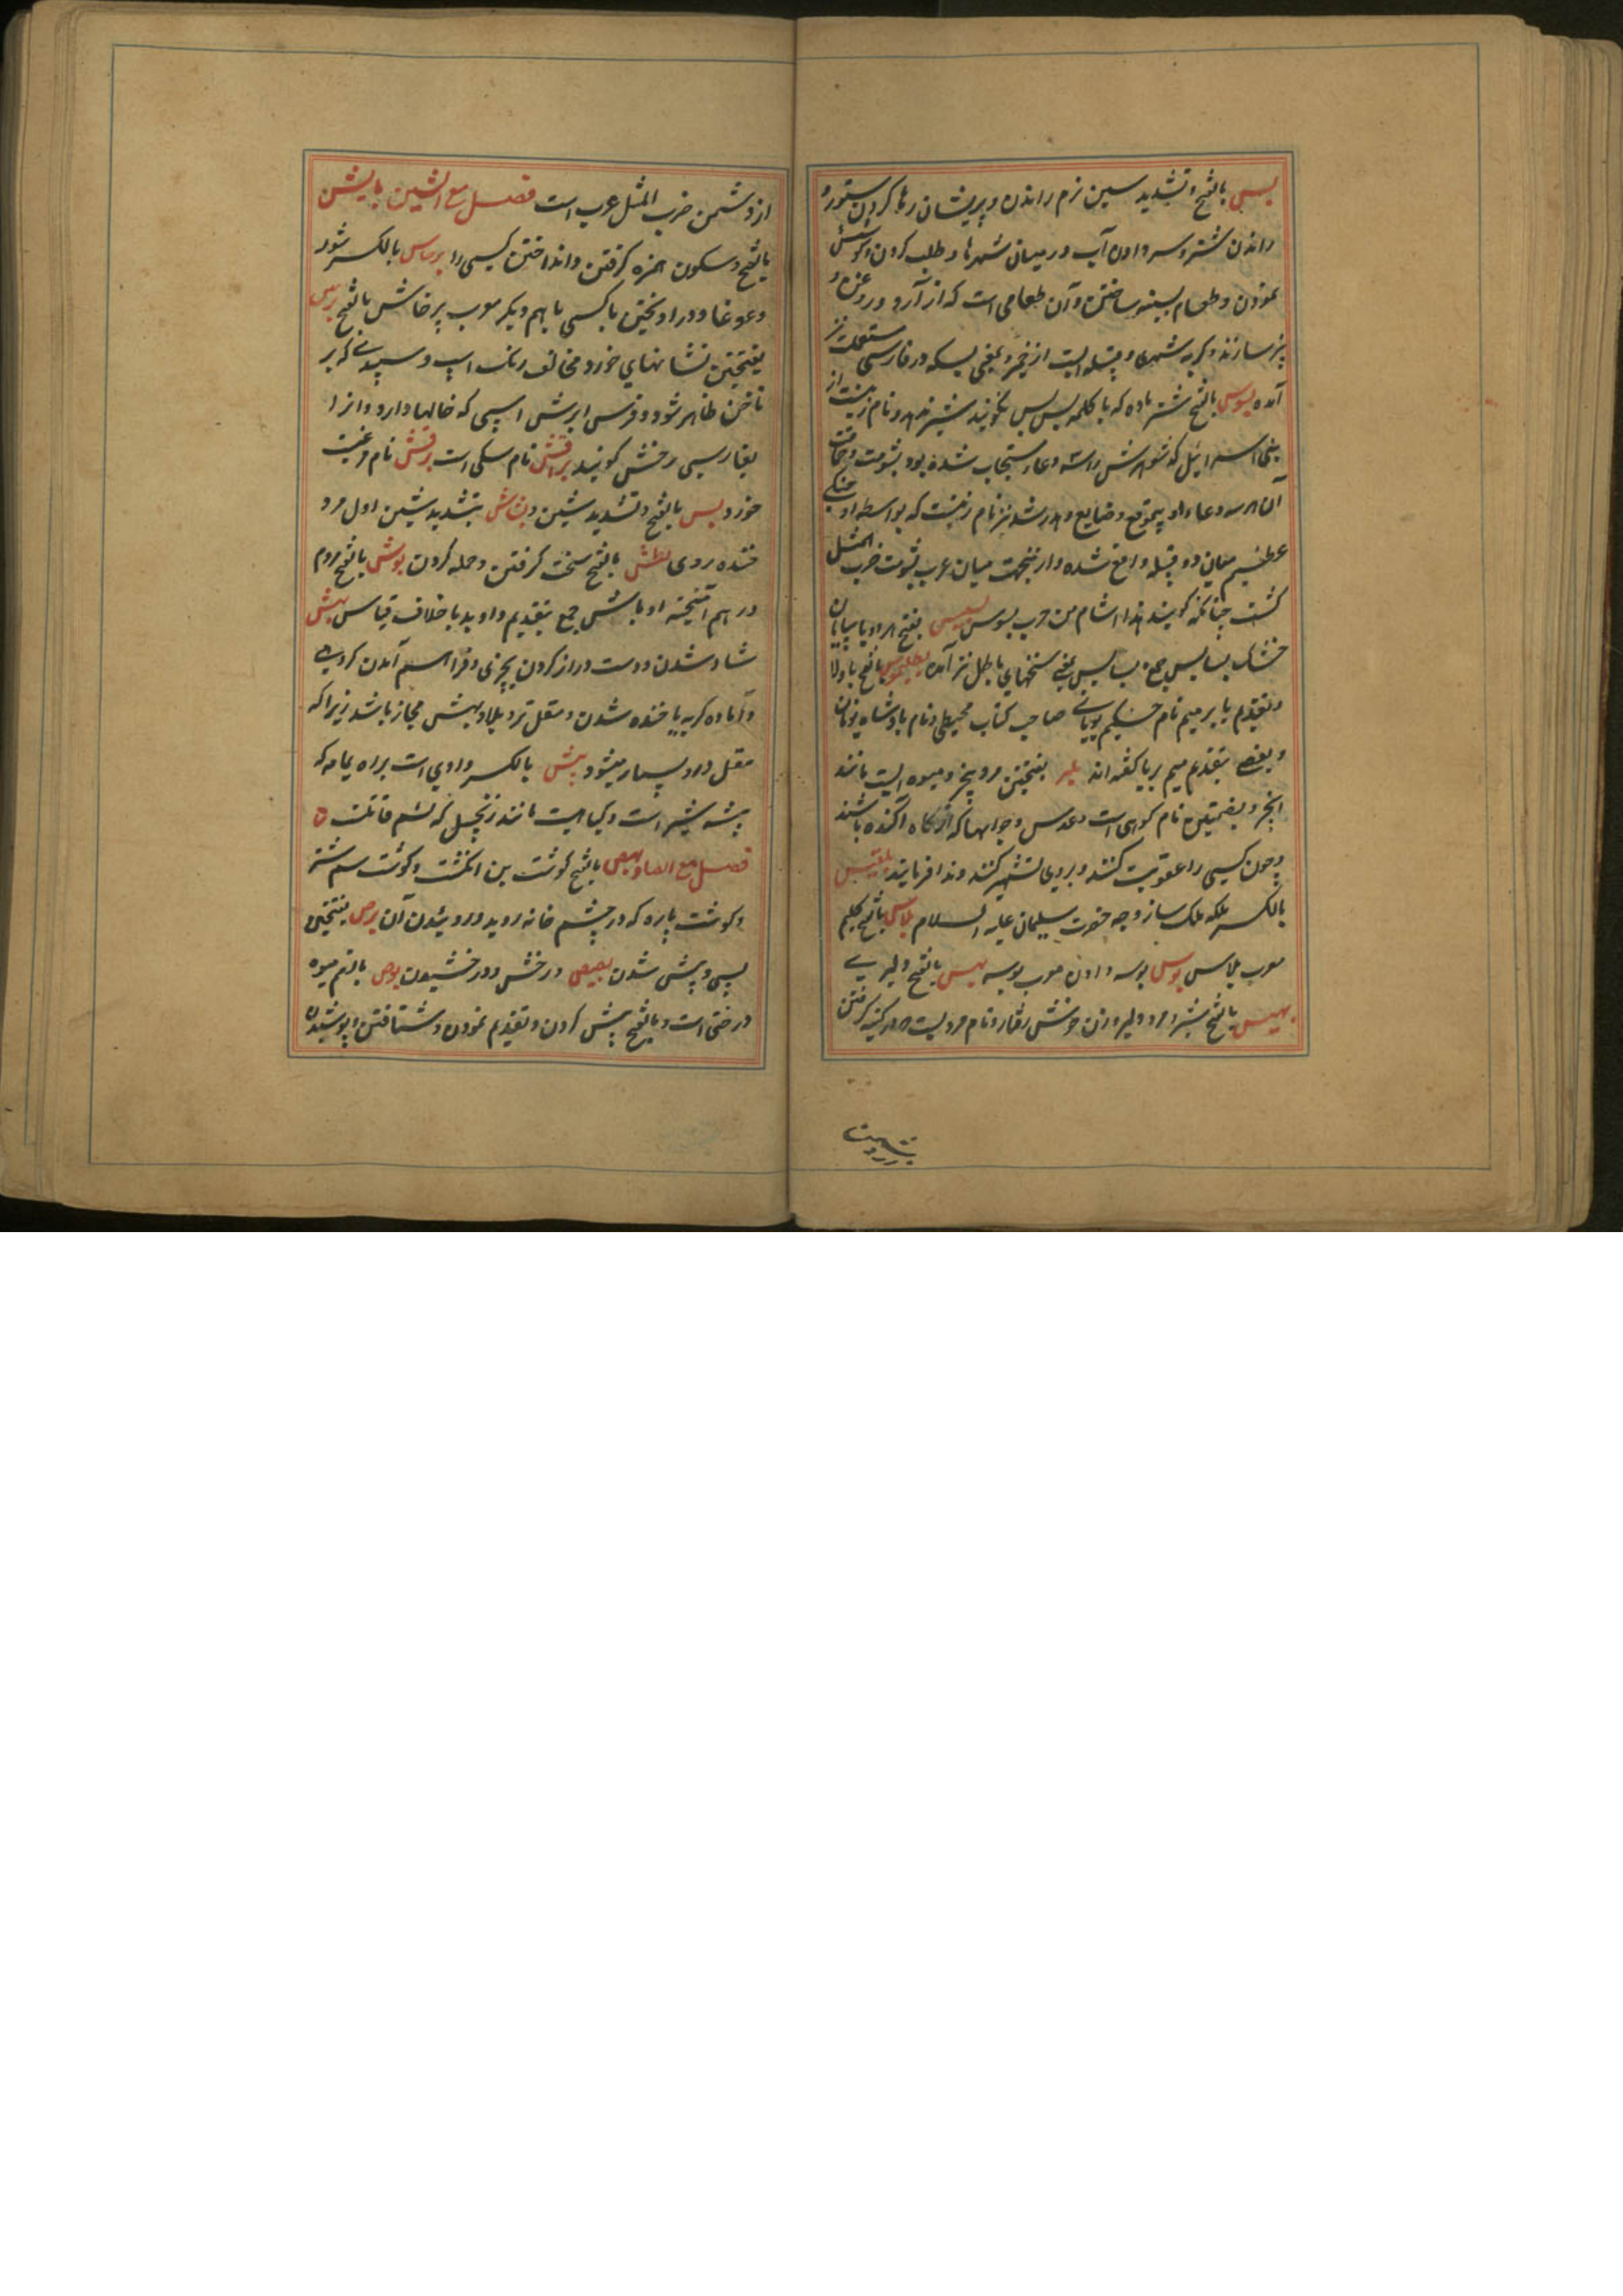 بس بالفتح و تشدید سین نرم راندن و پریشان رها کردن ستور و
راندن شتر و سر دادن آب در میان شهرها و طلب کردن و کوشش
نمودن و طعام بسیسه ساختن و آن طعامی است که از آرد و روغن و
پنیر سازند و کربه شهری و قبیله ایست از حمیر و بمعنی بسکه در فارسی مستعملست نیز
آمده بسوس بالفتح شتر ماده که با کلمه بس بس نکویند شیر ندهد و نام زنیست از
بنی اسرائیل که شوهرش را سه دعاء مستجاب شده بود بشومت و حماقت
آن هر سه دعاء او بیموقع و ضایع و هدر شد نیز نام زنیست که بواسطه او جنکی
عظیم میان دو قبیله واقع شده و از ینجهت میان عرب بشومت ضرب المثل
کشت چنانکه کویند هذا اشام من حرب بسوس بسبس بفتح هر دو با بیابان
خشک بسابس جمع بسابس بمعنی سخنهای باطل نیز آمده بطلیموس بالفتح با و لا
و تقدیم یا بر میم نام حکیم یونانی صاحب کتاب مجیطی و نام بادشاه یونان
و بعضی بتقدیم میم بر یا کفته اند بلس بفتحتین مرد بیخیر و میوه ایست مانند
انجیر و بضمتین نام کوهی است و عدس و جوالها که از کاه آکنده باشند
و چون کسی را عقوبت کنند و بروی تشهیر کنند و ندا فرمایند بلقیس
بالکسر ملکه ملک سبا زوجه حضرت سلیمان علیه السلام بلاس بالفتح کلیم
معرب پلاس بوس بوسه دادن معرب بوسه بهس بالفتح دلیری
بیهس بالفتح شیر و مرد دلیر و زن خوش رفتار و نام مردیست که در کینه کرفتن
از دشمن ضرب المثل عرب است فصل مع الشین بایش
بالفتح و سکون همزه کرفتن و انداختن کسی را برساس بالکسر شور
و غوغا و در اویختن با کسی باهم دیکر معرب پرخاش بالفتح برش
بفتحتین نشانهای خورد مخالف رنک اسپ و سپیدی که بر
ناخن ظاهر شود و فرس ابرش اسپی که خالها دارد و انرا
بفارسی رخش کویند براقش نام سکی است برقش نام مرغیست
خورد بس بالفتح و تشدید شین و بشاش بتشدید شین اول مرد
خنده روی بطش بالفتح سخت کرفتن و حمله کردن بوش بالفتح مردم
در هم آمیخته اوباش جمع بتقدیم واو بر با خلاف قیاس بهش
شاد شدن و دست دراز کردن بچیزی و فراهم آمدن کروهی
و آماده کریه یا خنده شدن و مقل تر و بلاد بهش حجاز باشد زیراکه
مقل درو بسیار میشود بیش بالکسر وادی است براه یمامه که
بیشه شیر است و کیاهیست مانند زنجبیل که سم قاتلست ۵
فصل مع الصاد بخص بالفتح کوشت بن انکشت و کوشت سم شتر
و کوشت پاره که در چشم خانه روید و رویدن آن برص بفتحتین
پسی و پیش شدن بصیص درخش و درخشیدن بوص بالضم میوه
درختی است و بالفتح پیش کردن و تقدیم نمودن و شتافتن و پوشیدن